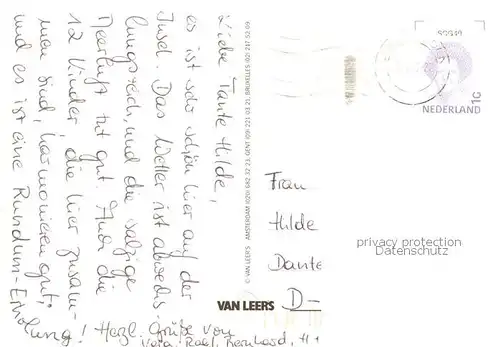 Liebe Tante Hilde,
es ist soo schön hier auf der
Insel. Das Wetter ist abwechs-
lungsreich, und die salzige
Meerluft tut gut. Auch die
12 Kinder, die hier zusam-
men sind, harmonieren gut;
und es ist eine Rundum-Erholung!
Herzl. Grüße von
Bernhard,
© VAN LEER'S AMSTERDAM (020) 682 32 23, GENT (09) 221 03 21, BRUXELLES (02) 217 52 09.
VAN LEERS
NEDERLAND
Frau
Hilde
Dante
D-
privacy protection
Datenschutz